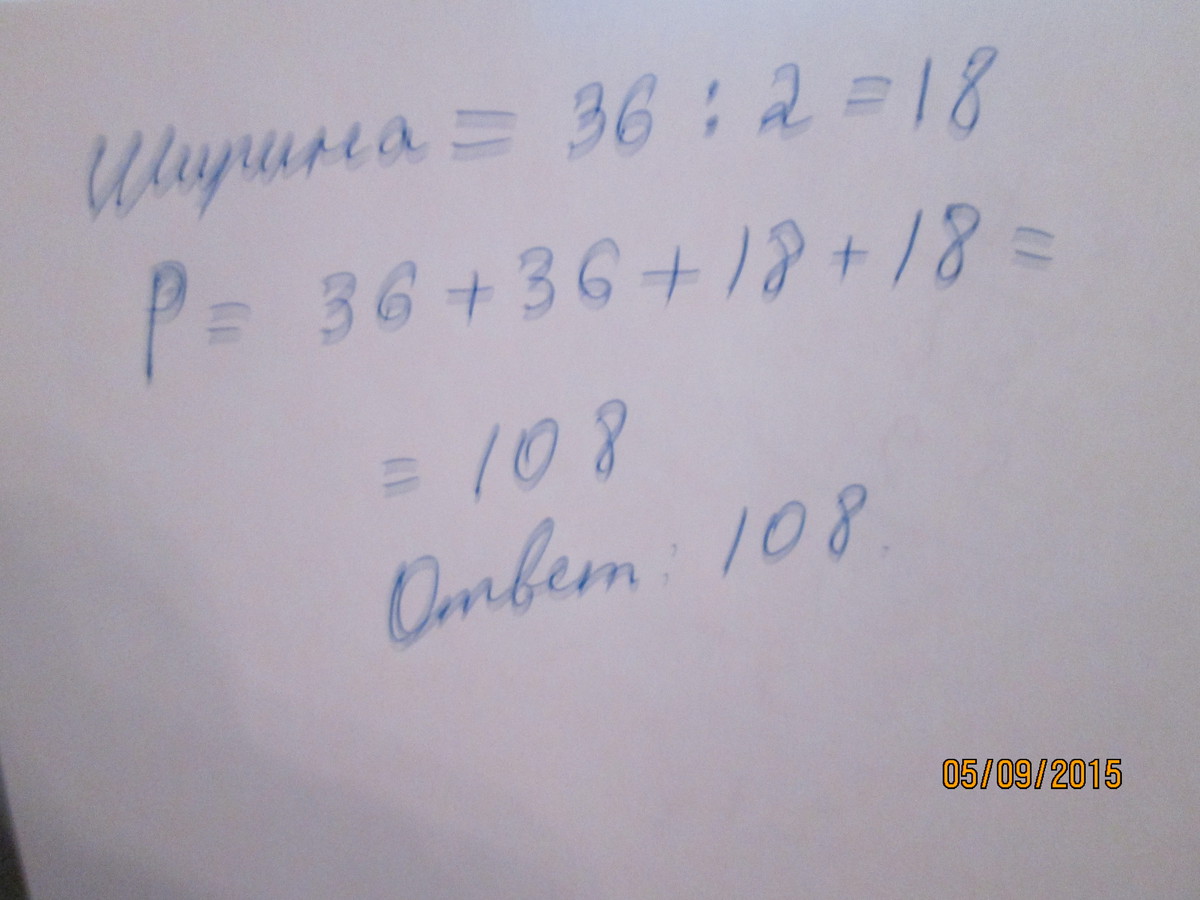 Ширина = 36 : 2 = 18
P = 36 + 36 + 18 + 18 =
= 108
Ответ: 108.
05/09/2015